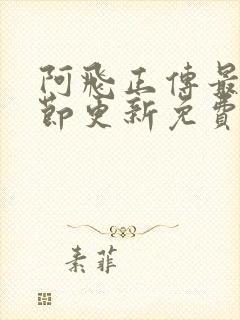 阿飛正傳最
節更新免費
素菲